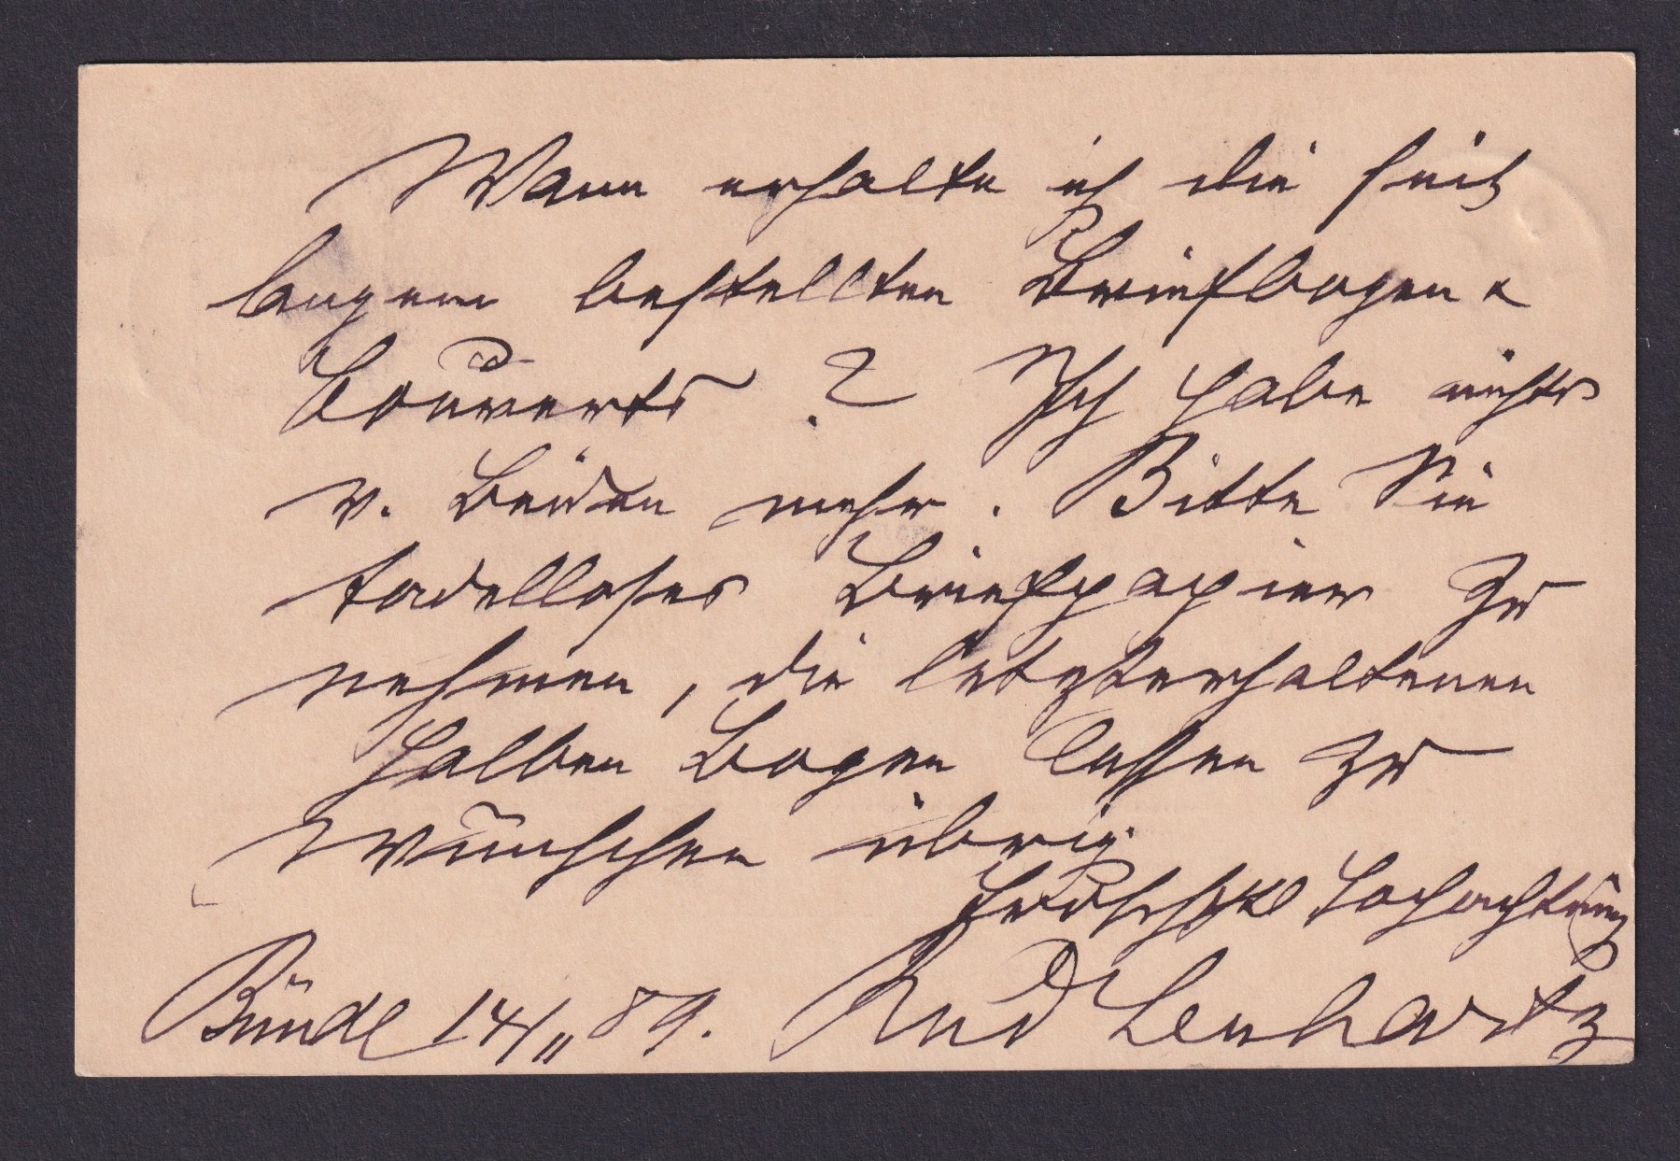 Wann erhalte ich die seit
langem bestellten Briefbogen &
Couverts? Ich habe nichts
v. beiden mehr. Bitte Sie
tadelloses Briefpapier zu
nehmen, die letzterhaltenen
halben Bogen lassen zu
wünschen übrig.
Hochachtung
Bünde 14/11 89. Rud Lenhartz